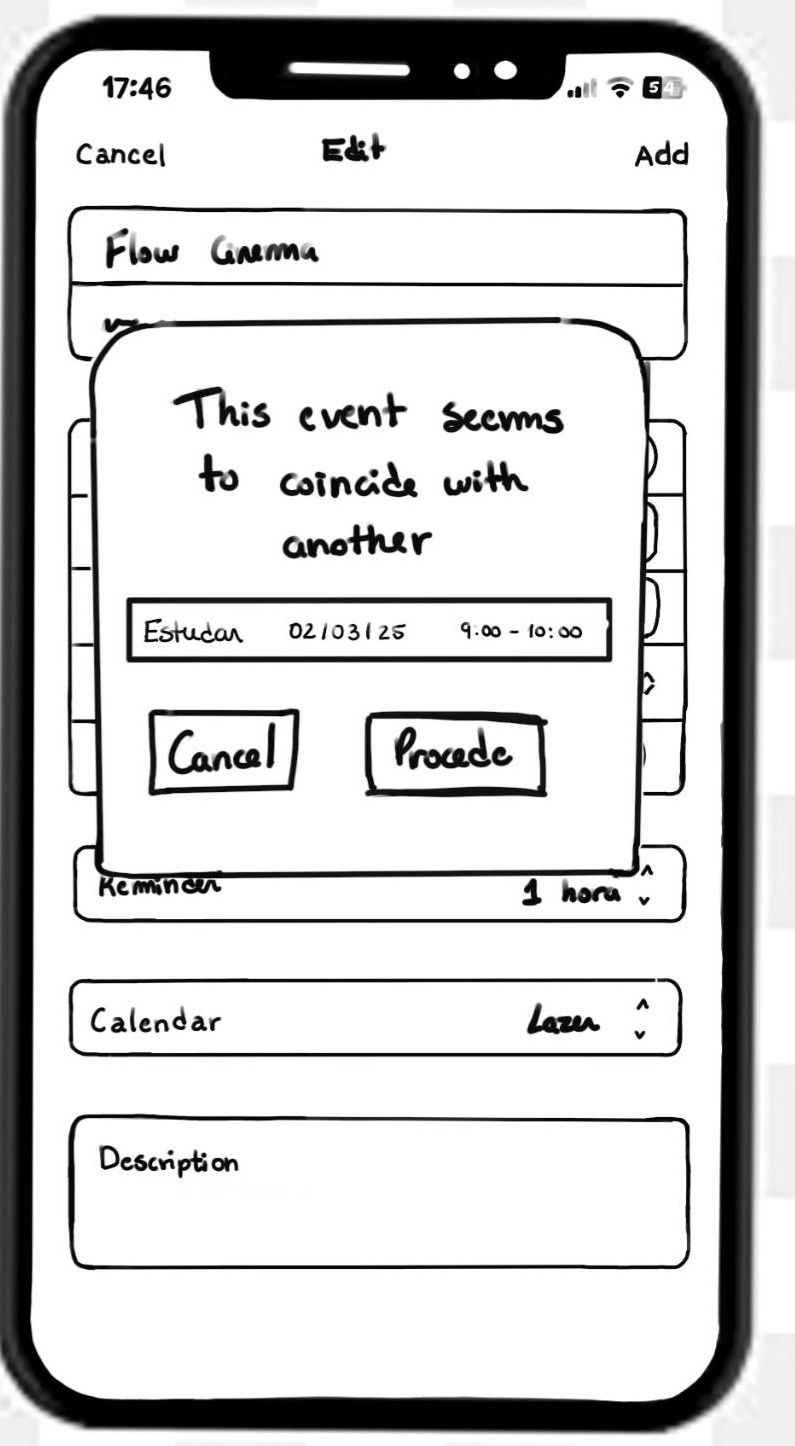 17:46 54
Cancel Edit Add
Flow Cinema
This event seems
to coincide with
another
Estudar 02/03/25 9:00 - 10:00
Cancel Procede
Reminder 1 hora
Calendar Lazer
Description